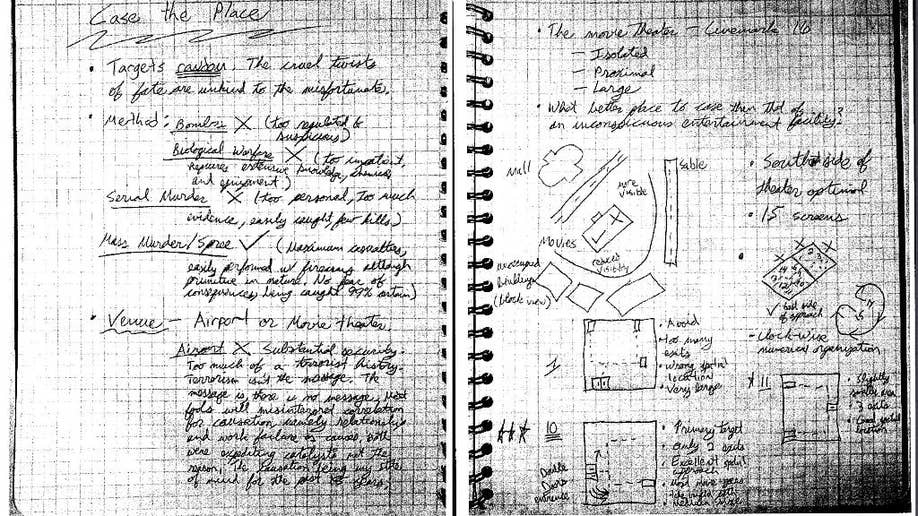 Case the Place
• Targets random. The cruel twists
of fate are unkind to the misfortunate.
• Method: Bombs X (too regulated &
suspicious)
Biological Warfare X (too impatient,
requires extensive knowledge, chemicals
and equipment)
Serial Murder X (too personal, too much
evidence, easily caught, few kills)
Mass Murder/Spree ✓ (Maximum casualties,
easily performed w/ firearms although
primitive in nature. No fear of
consequences, being caught 99% certain)
• Venue - Airport or Movie theater.
Airport X Substantial security.
Too much of a terrorist history.
Terrorism isn't the message. The
message is, there is no message. Most
fools will misinterpret correlation
for causation, namely relationship
and work failure as causes. Both
were expediting catalysts not the
reason. The causation being my state
of mind for the past years.
• The movie theater - Cinemark 16
- Isolated
- Proximal
- Large
• What better place to case than that of
an inconspicuous entertainment facility?
mall
more
visible
Sable
Movies
reduced
visibility
unoccupied
buildings
(block view)
• South side of
theater optimal
• 15 screens
✓ best side
of approach
- clock-wise
numerical organization
1
• Avoid
• too many
exits
• wrong
location
• Very large
★ 11
• Slightly
3 exits
location
★★★ 10
Double
Doors
entrance
• Primary target
• only 2 exits
• Excellent
approach